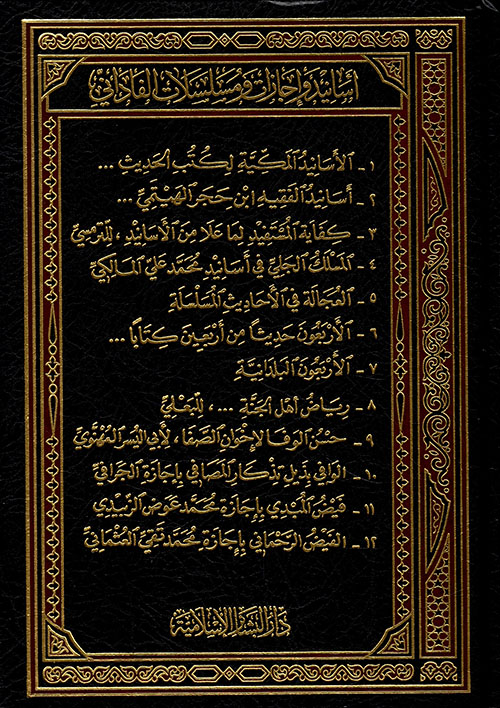 أسانيد وإجازات ومسلسلات الفاداني
١ - الأَسَانيدُ المَكيَّة لِكُتُبِ الحَدِيثِ ...
٢ - أَسَانيدُ الفَقيهِ ابْن حَجَر الهَيْتَميِّ ...
٣ - كِفَايَة المُسْتَفِيد لِمَا عَلَا مِنَ الأَسَانيد ، لِلتّرمسيِّ
٤ - المَسْلَكُ الجَليُّ في أَسَانيدِ مُحمَّد عَليّ المَالِكيِّ
٥ - العُجَالَة في الأَحَاديثِ المُسَلْسَلَة
٦ - الأَرْبَعُونَ حَديْثاً مِن أَرْبَعِينَ كِتَابًا ...
٧ - الأَرْبَعُون البَلدَانيَّةِ
٨ - ريَاضُ أَهْل الجَنَّةِ ... ، لِلبَعْليِّ
٩ - حُسْنُ الوَفَا لإخْوَانِ الصَّفَا ، لأَبي اليُسْر المُهَنويِّ
١٠ - الوَافي بذَيْل تِذْكَار المَصَافي بإجَازَةِ الجرَافيِّ
١١ - فَيْضُ المُبْدِي بإجَازَة مُحمَّد عَوَض الزَّبيدِي
١٢ - الفَيْضُ الرَّحمَاني بإجَازَةِ مُحمَّد تَقيّ العُثْمَانيِّ
دار البشائر الإسلامية